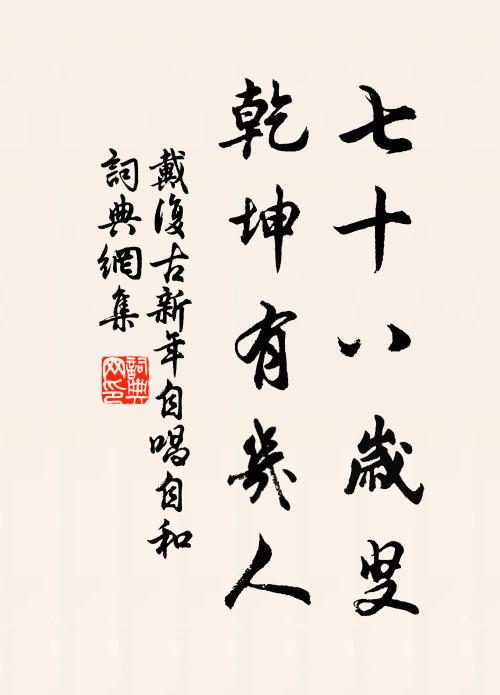 七十八歲叟
乾坤有幾人
戴復古新年自唱自和
詞典網集
詞典網印